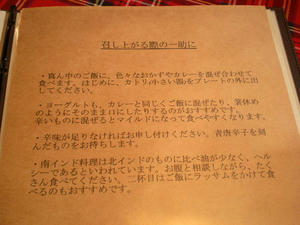 召し上がる際の一助に
・真ん中のご飯に、色々なおかずやカレーを混ぜ合わせて
食べます。はじめに、カトリ(小さい器)をプレートの外に出
してください。
・ヨーグルトも、カレーと同じくご飯に混ぜたり、箸休め
のようにそのまま口にしたりするのがおすすめです。
辛いものに混ぜるとマイルドになって食べやすくなります。
・辛味が足りなければお申し付けください。青唐辛子を刻
んだものをお持ちします。
・南インド料理は北インドのものに比べ油が少なく、ヘル
シーであるといわれています。お腹と相談しながら、たく
さん食べてください。二杯目はご飯にラッサムをかけて食
べるのもおすすめです。